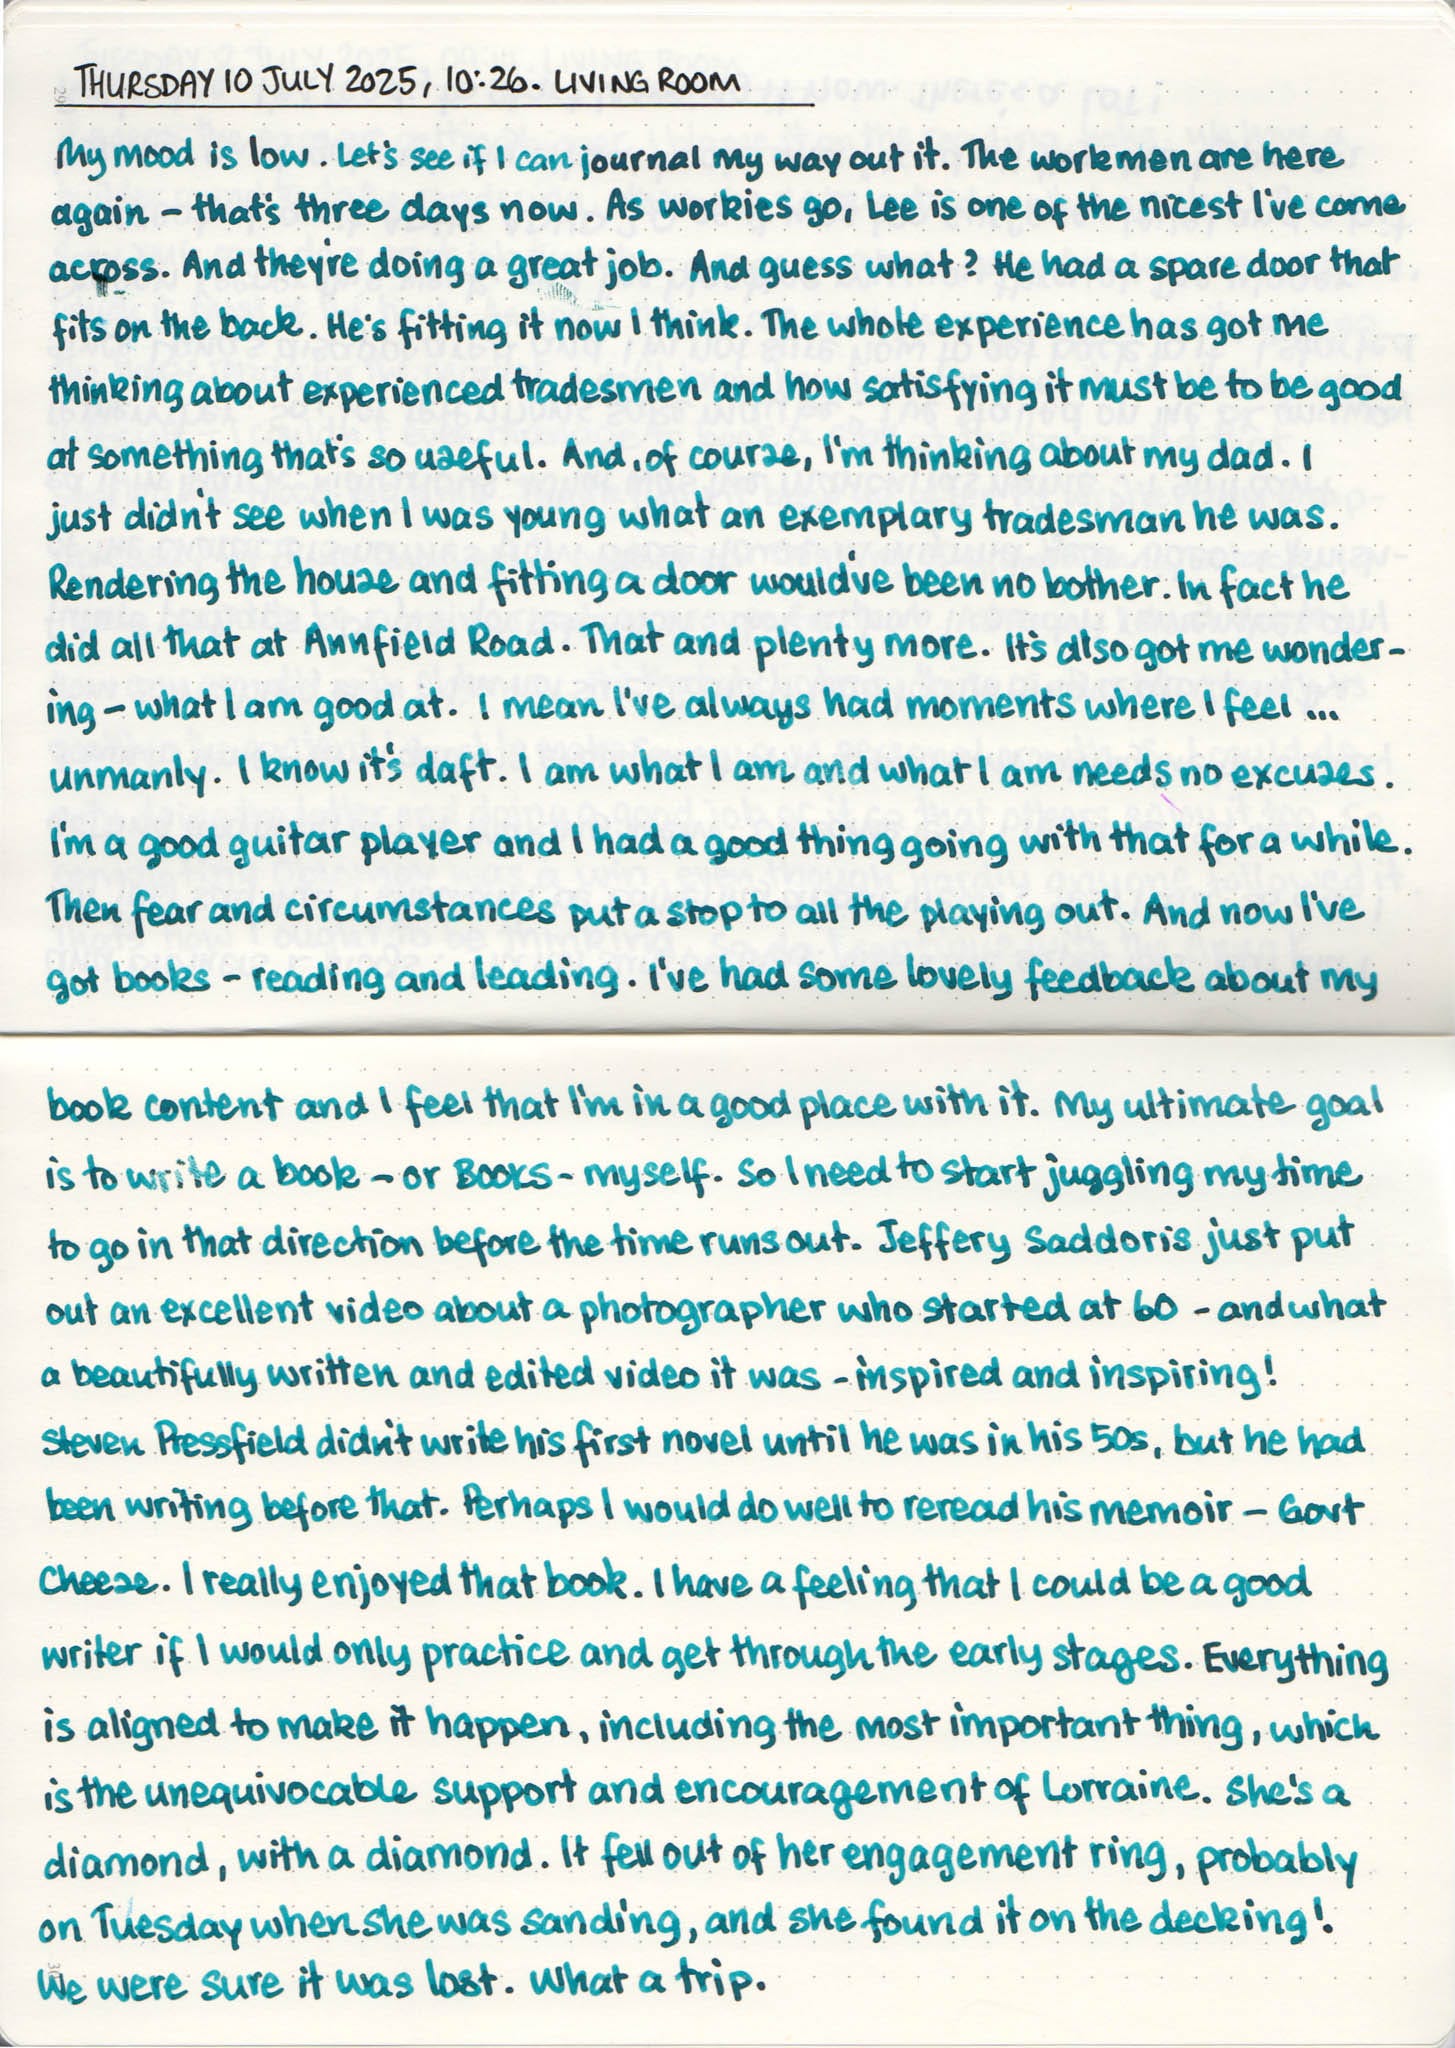 THURSDAY 10 JULY 2025, 10:26. LIVING ROOM
My mood is low. Let's see if I can journal my way out it. The workmen are here
again – that's three days now. As workies go, Lee is one of the nicest I've come
across. And they're doing a great job. And guess what? He had a spare door that
fits on the back. He's fitting it now I think. The whole experience has got me
thinking about experienced tradesmen and how satisfying it must be to be good
at something that's so useful. And, of course, I'm thinking about my dad. I
just didn't see when I was young what an exemplary tradesman he was.
Rendering the house and fitting a door would've been no bother. In fact he
did all that at Annfield Road. That and plenty more. It's also got me wonder-
ing – what I am good at. I mean I've always had moments where I feel ...
unmanly. I know it's daft. I am what I am and what I am needs no excuses.
I'm a good guitar player and I had a good thing going with that for a while.
Then fear and circumstances put a stop to all the playing out. And now I've
got books – reading and leading. I've had some lovely feedback about my
book content and I feel that I'm in a good place with it. My ultimate goal
is to write a book – or BOOKS – myself. So I need to start juggling my time
to go in that direction before the time runs out. Jeffery Saddoris just put
out an excellent video about a photographer who started at 60 – and what
a beautifully written and edited video it was – inspired and inspiring!
Steven Pressfield didn't write his first novel until he was in his 50s, but he had
been writing before that. Perhaps I would do well to reread his memoir – Govt
Cheese. I really enjoyed that book. I have a feeling that I could be a good
writer if I would only practice and get through the early stages. Everything
is aligned to make it happen, including the most important thing, which
is the unequivocable support and encouragement of Lorraine. She's a
diamond, with a diamond. It fell out of her engagement ring, probably
on Tuesday when she was sanding, and she found it on the decking!
We were sure it was lost. What a trip.